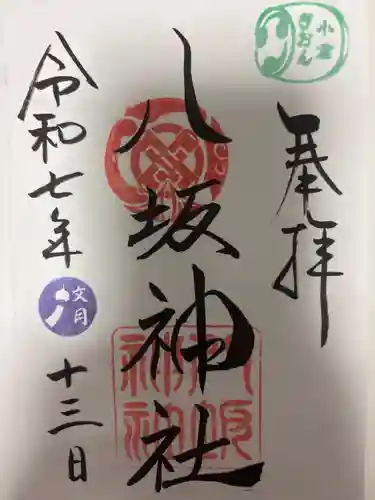 奉拝
小倉
ぎおん
八坂神社
八坂神社
令和七年
文月
十三日